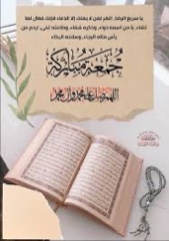 يا سريع الرضا، اغفر لمن لا يملك إلا الدعاء فإنك فعال لما
تشاء، يا من اسمه دواء، وذكره شفاء، وطاعته غنى، ارحم من
رأس ماله الرجاء وسلاحه البكاء
جمعة مباركة
اللهم صل على محمد وآل محمد